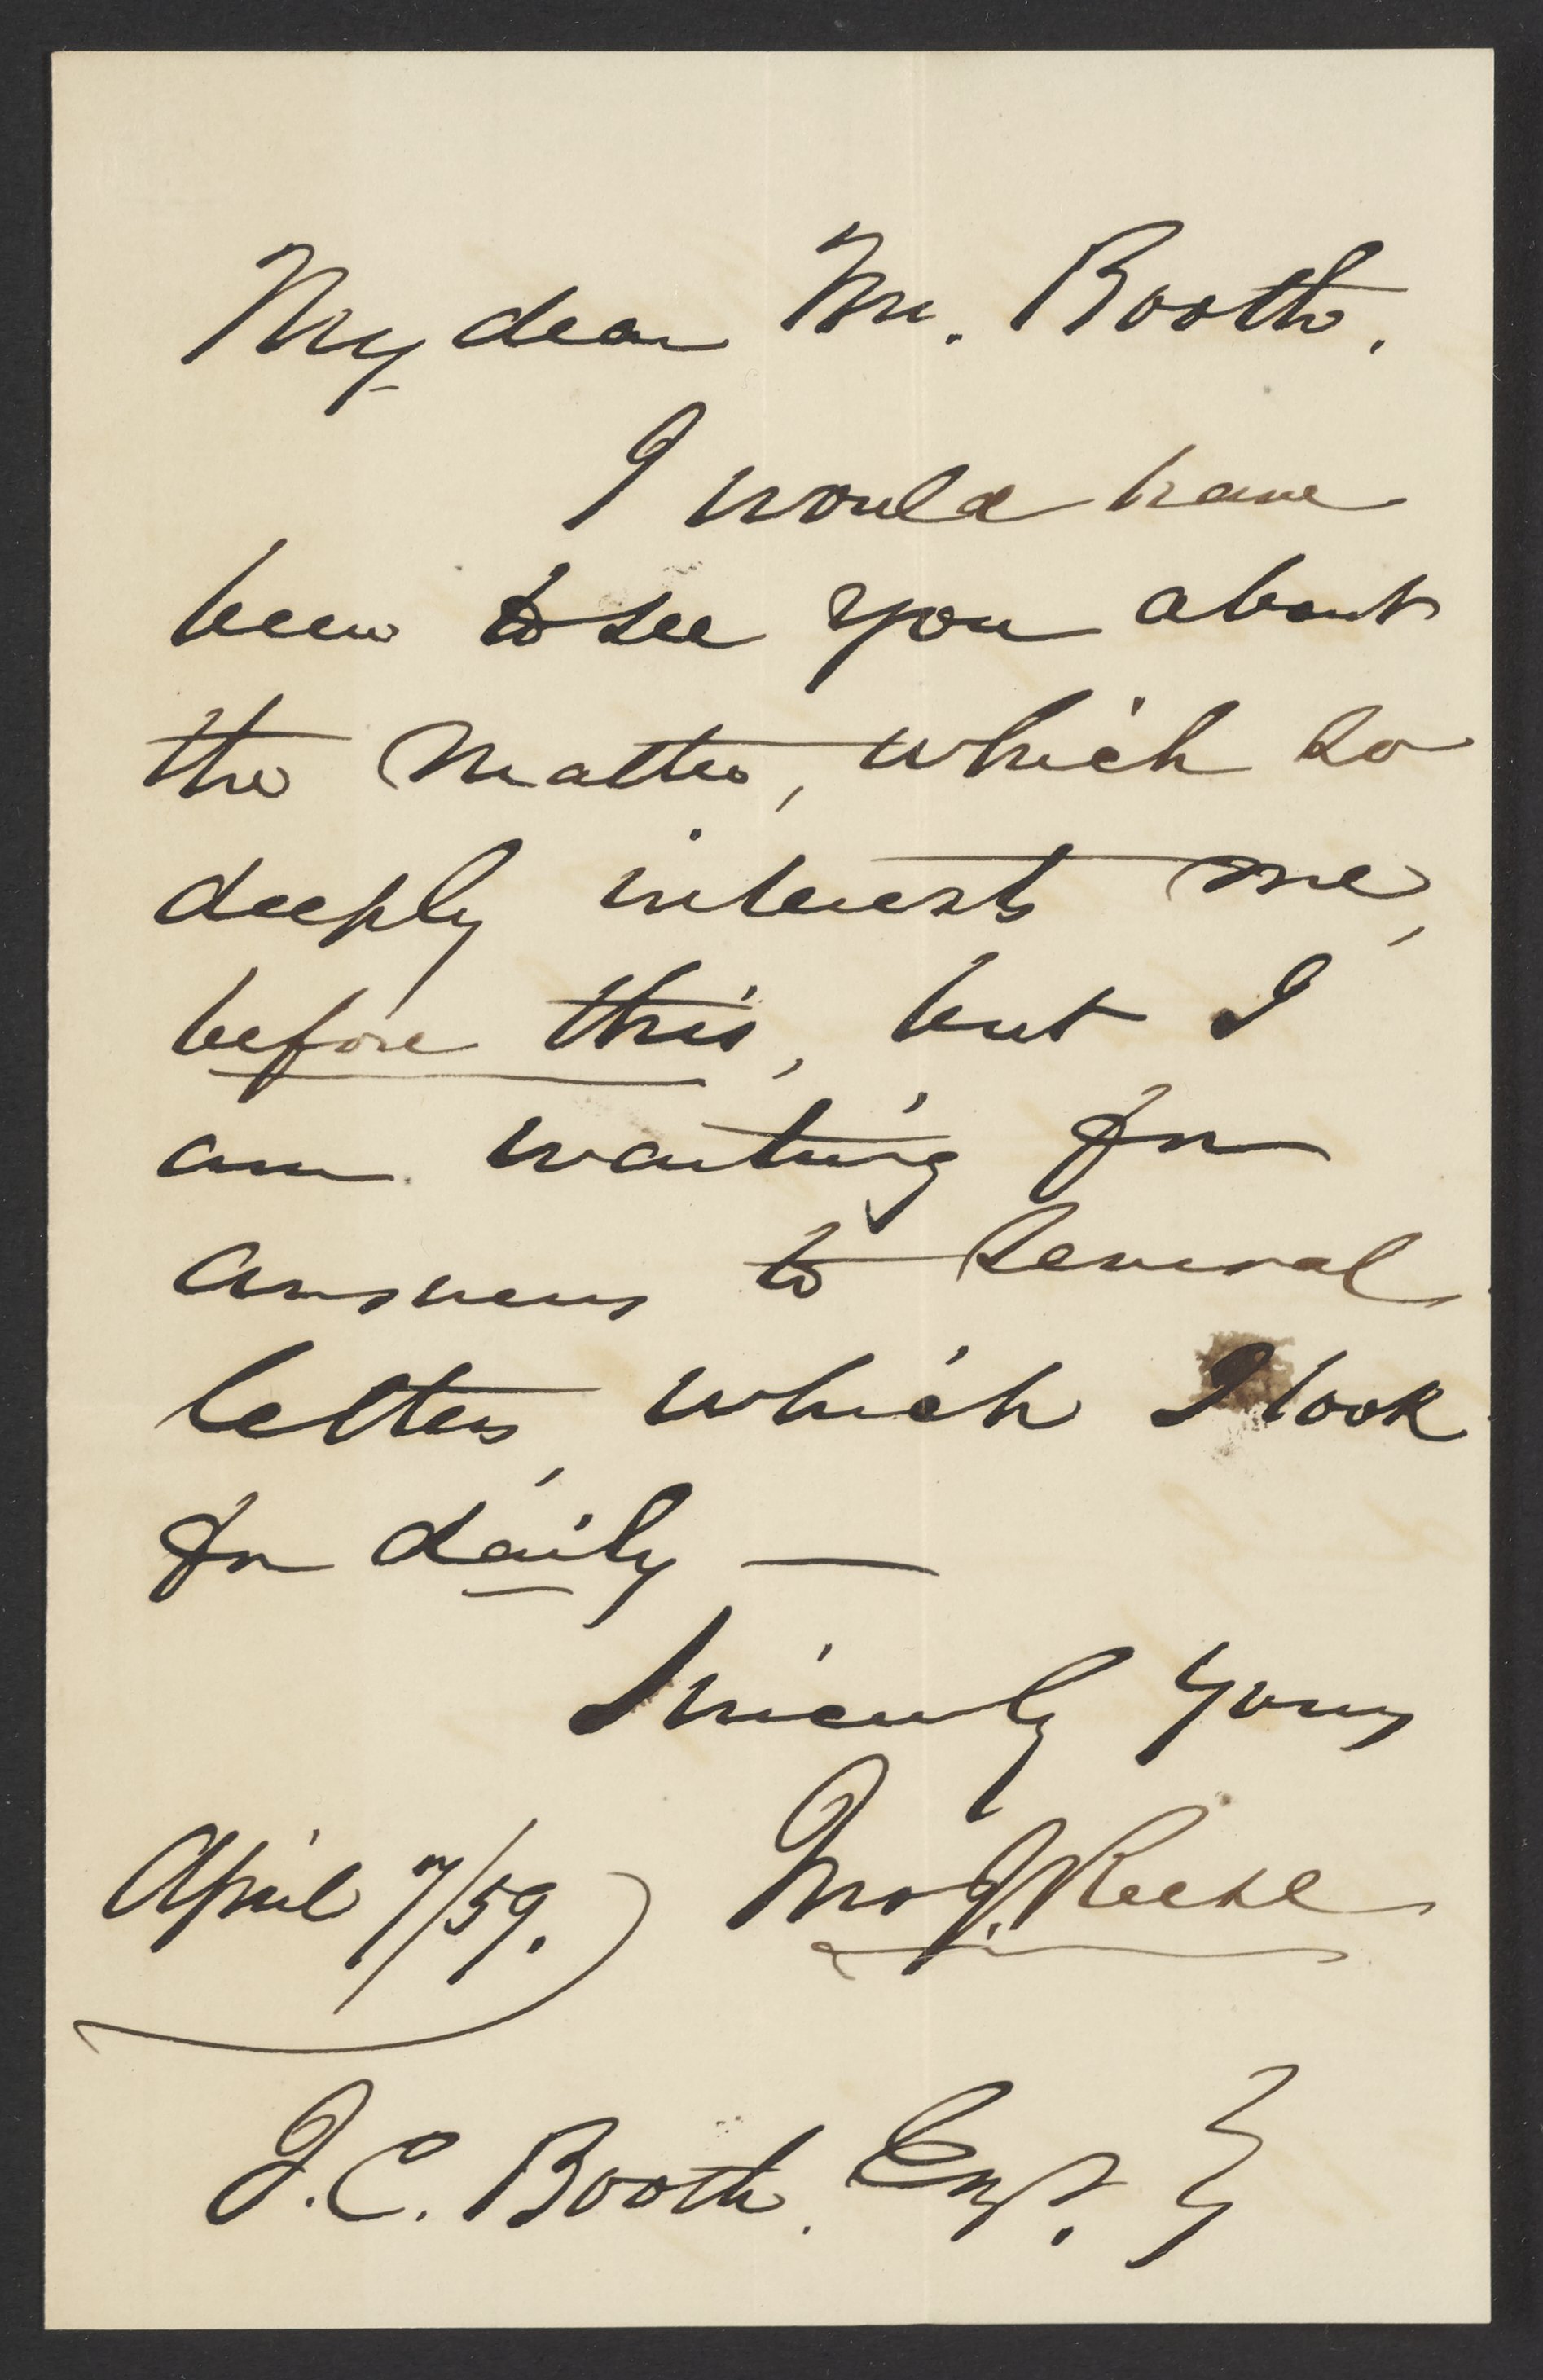 My dear Mr. Booth.
I would have
been to see you about
the matter, which so
deeply interests me,
before this, but I
am waiting for
answers to several
letters, which I look
for daily —
Sincerely yours
April 7/59. Jno J. Reese
J. C. Booth. Esq.